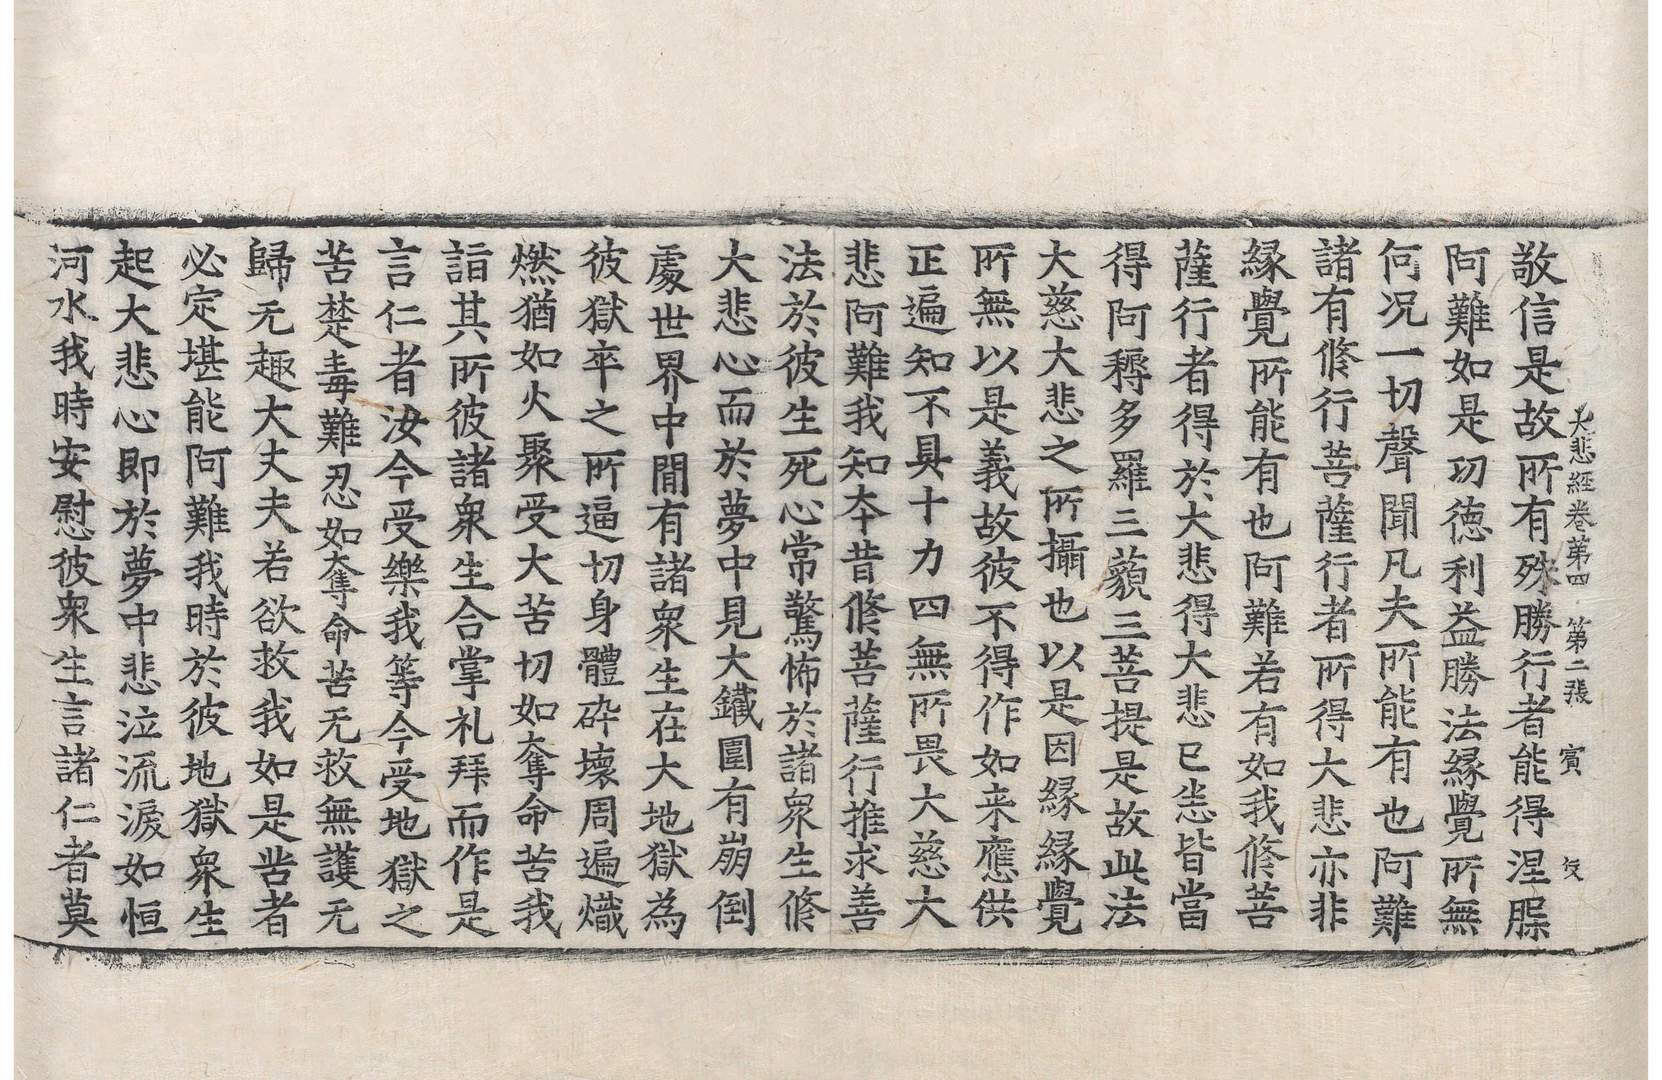 大悲經卷第四 第二張 賓
敬信是故所有殊勝行者能得涅槃
阿難如是功德利益勝法緣覺所無
何况一切聲聞凡夫所能有也阿難
諸有修行菩薩行者所得大悲亦非
緣覺所能有也阿難若有如我修菩
薩行者得於大悲得大悲已悉皆當
得阿耨多羅三藐三菩提是故此法
大慈大悲之所攝也以是因緣緣覺
所無以是義故彼不得作如来應供
正遍知不具十力四無所畏大慈大
悲阿難我知本昔修菩薩行推求善
法於彼生死心常驚怖於諸衆生修
大悲心而於夢中見大鐵圍有崩倒
處世界中閒有諸衆生在大地獄為
彼獄卒之所逼切身體碎壞周遍熾
燃猶如火聚受大苦切如奪命苦我
詣其所彼諸衆生合掌礼拜而作是
言仁者汝今受樂我等今受地獄之
苦楚毒難忍如奪命苦无救無護无
歸无趣大丈夫若欲救我如是苦者
必定堪能阿難我時於彼地獄衆生
起大悲心即於夢中悲泣流淚如恒
河水我時安慰彼衆生言諸仁者莫